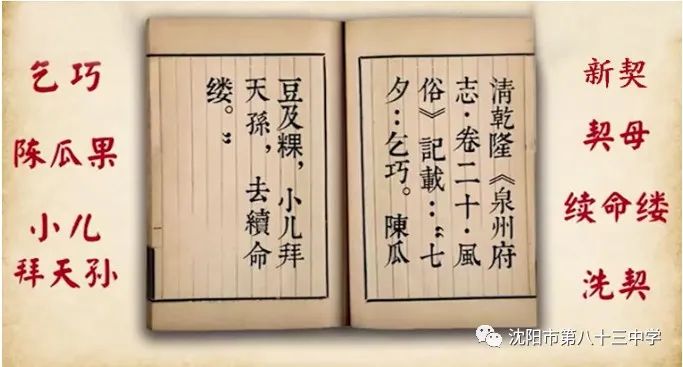 乞巧
陈瓜果
小儿
拜天孙
清乾隆《泉州府
志·卷二十·風
俗》記載：“七
夕：乞巧。陳瓜
豆及粿，小儿拜
天孫，去續命
缕。”
新契
契母
续命缕
洗契
沈阳市第八十三中学